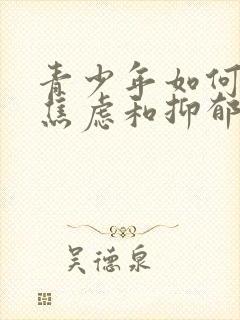 青少年如何
焦虑和抑郁
吴德泉